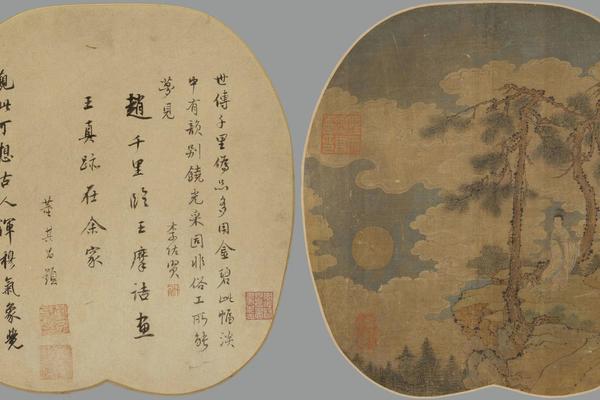 世傳千里偽品多用金碧此幅淡
中有韻別饒光采固非俗工所能
夢見
李佐賢
趙千里臨王摩詰畫
王真跡在余家
董其昌題
觀此可想古人渾穆氣象覺